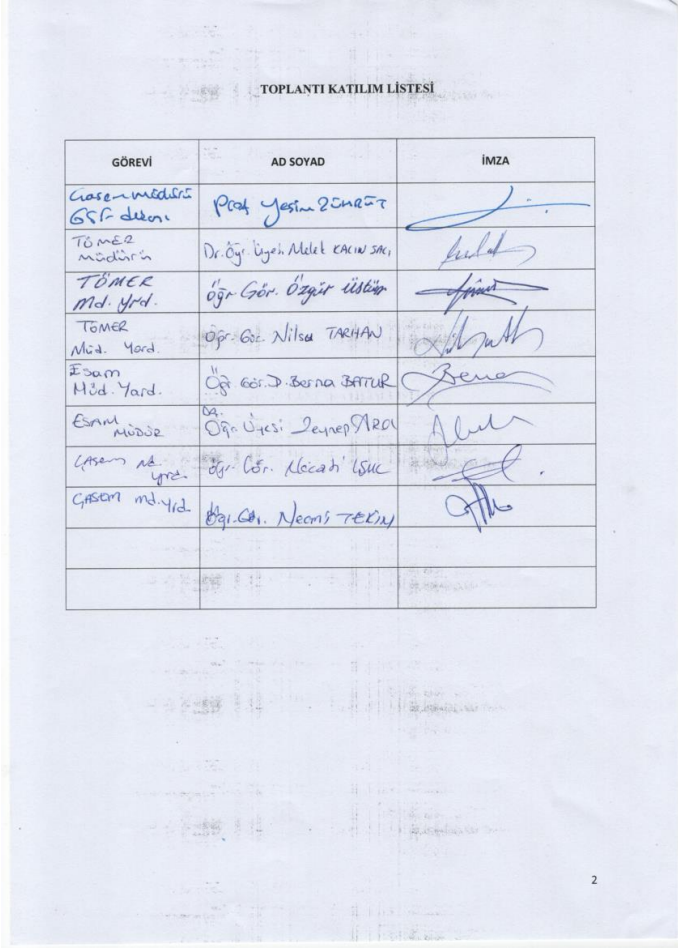 TOPLANTI KATILIM LİSTESİ
GÖREVİ AD SOYAD İMZA
Çasem müdürü
GSF dekanı
Prof Yeşim ZÜMRÜT
TÖMER
müdürü
Dr. Öğr. Üyesi Melek KALIN SALI
TÖMER
Md. yrd.
Öğr Gör. Özgür Üstün
TÖMER
Müd. Yard.
Öğr. Gör. Nilsu TARHAN
Esam
Müd. Yard.
Öğr Gör. D. Berna BATUR
ESAM
MÜDÜR
Dr.
Öğr. Üyesi Zeynep
ÇASEM md
yrd.
Öğr. Gör. Necati IŞIK
ÇASEM md. yrd.
Öğr. Gör. Necmi TEKİN
2